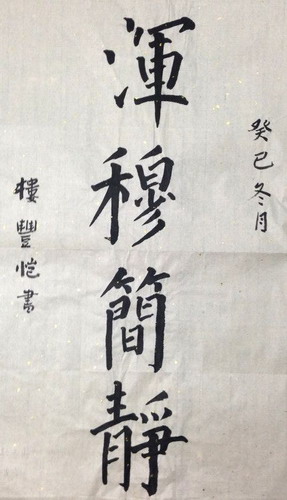 癸巳冬月
渾穆簡靜
樓豐愷書